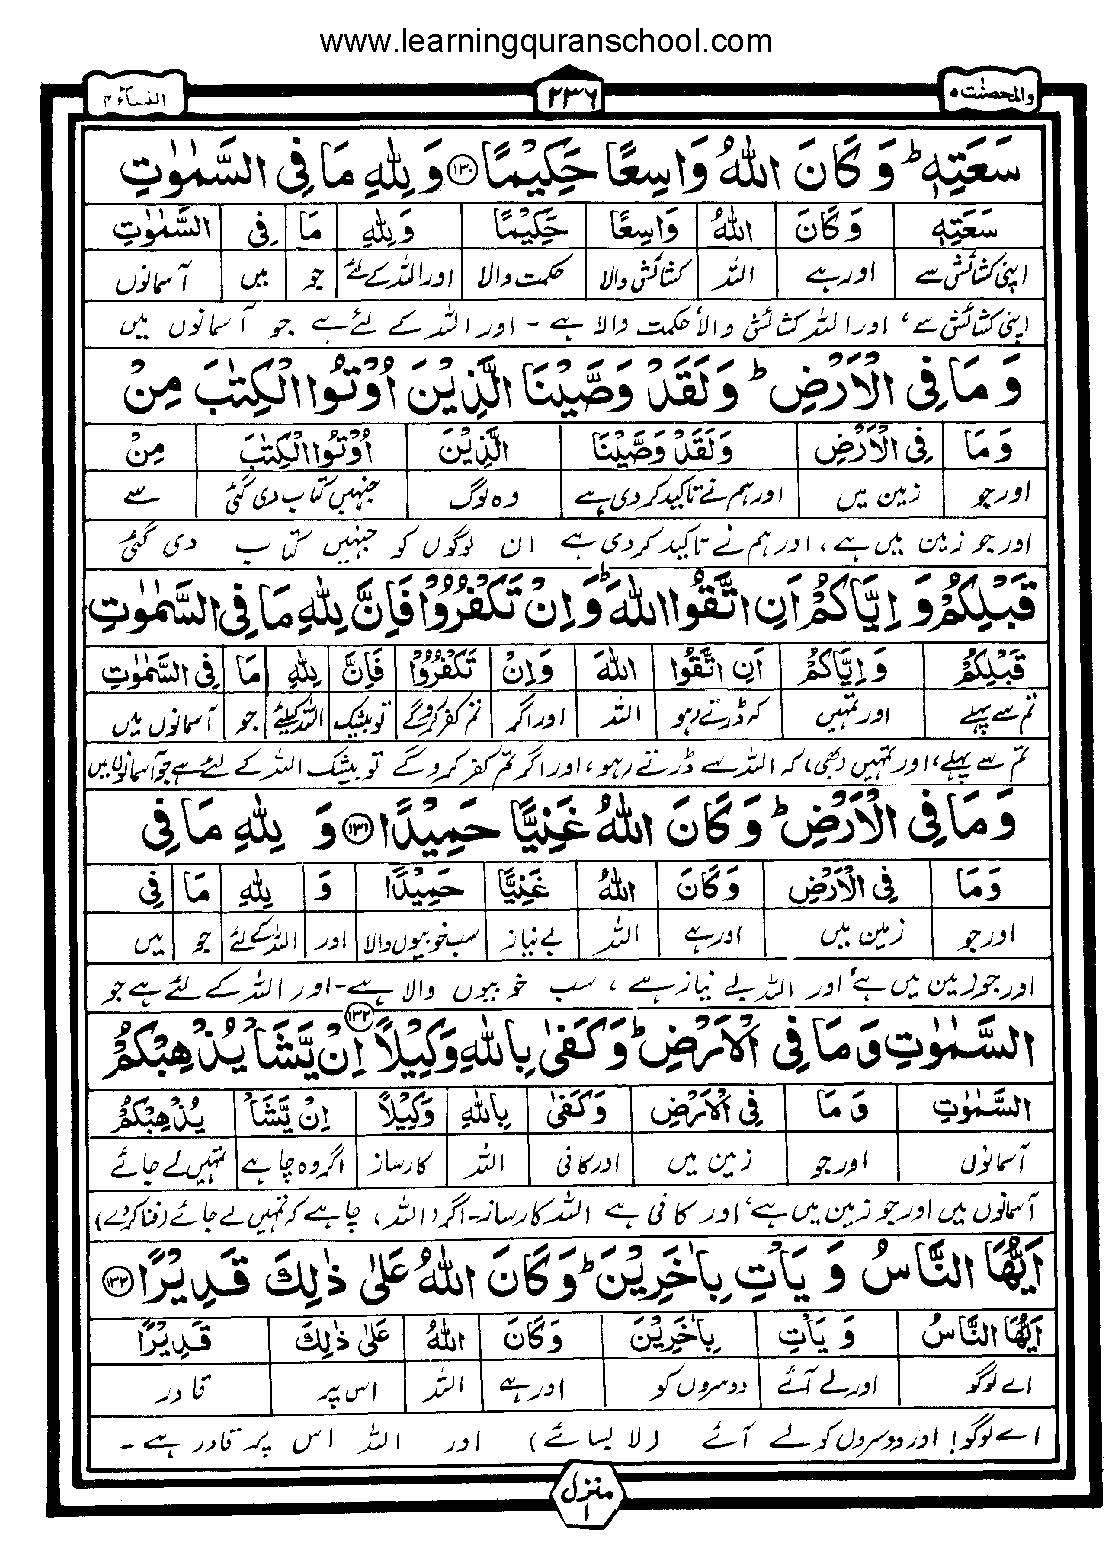 www.learningquranschool.com
والمحصنٰت ٥ ٢٣٦ النساء ٤
سَعَتِهٖ ؕ وَ كَانَ اللّٰهُ وَاسِعًا حَكِيْمًا ﴿۱۳۰﴾ وَ لِلّٰهِ مَا فِي السَّمٰوٰتِ
سَعَتِهٖ وَ كَانَ اللّٰهُ وَاسِعًا حَكِيْمًا وَ لِلّٰهِ مَا فِي السَّمٰوٰتِ
اپنی کشائش سے اور ہے اللہ کشائش والا حکمت والا اور اللہ کے لئے جو میں آسمانوں
اپنی کشائش سے، اور اللہ کشائش والا حکمت والا ہے - اور اللہ کے لئے ہے جو آسمانوں میں
وَ مَا فِي الْاَرْضِ ؕ وَ لَقَدْ وَصَّيْنَا الَّذِيْنَ اُوْتُوا الْكِتٰبَ مِنْ
وَ مَا فِي الْاَرْضِ وَ لَقَدْ وَصَّيْنَا الَّذِيْنَ اُوْتُوا الْكِتٰبَ مِنْ
اور جو زمین میں اور ہم نے تاکید کر دی ہے وہ لوگ جنہیں کتاب دی گئی سے
اور جو زمین میں ہے، اور ہم نے تاکید کر دی ہے ان لوگوں کو جنہیں کتاب دی گئی
قَبْلِكُمْ وَ اِيَّاكُمْ اَنِ اتَّقُوا اللّٰهَ ؕ وَ اِنْ تَكْفُرُوْا فَاِنَّ لِلّٰهِ مَا فِي السَّمٰوٰتِ
قَبْلِكُمْ وَ اِيَّاكُمْ اَنِ اتَّقُوا اللّٰهَ وَ اِنْ تَكْفُرُوْا فَاِنَّ لِلّٰهِ مَا فِي السَّمٰوٰتِ
تم سے پہلے اور تمہیں کہ ڈرتے رہو اللہ اور اگر تم کفر کرو گے تو بیشک اللہ کیلئے جو آسمانوں میں
تم سے پہلے، اور تمہیں (بھی) کہ اللہ سے ڈرتے رہو، اور اگر تم کفر کرو گے تو بیشک اللہ کے لئے ہے جو آسمانوں میں
وَ مَا فِي الْاَرْضِ ؕ وَ كَانَ اللّٰهُ غَنِيًّا حَمِيْدًا ﴿۱۳۱﴾ وَ لِلّٰهِ مَا فِي
وَ مَا فِي الْاَرْضِ وَ كَانَ اللّٰهُ غَنِيًّا حَمِيْدًا وَ لِلّٰهِ مَا فِي
اور جو زمین میں اور ہے اللہ بے نیاز سب خوبیوں والا اور اللہ کے لئے جو میں
اور جو زمین میں ہے، اور اللہ بے نیاز ہے، سب خوبیوں والا ہے - اور اللہ کے لئے ہے جو
السَّمٰوٰتِ وَ مَا فِي الْاَرْضِ ؕ وَ كَفٰى بِاللّٰهِ وَكِيْلًا ﴿۱۳۲﴾ اِنْ يَّشَاْ يُذْهِبْكُمْ
السَّمٰوٰتِ وَ مَا فِي الْاَرْضِ وَ كَفٰى بِاللّٰهِ وَكِيْلًا اِنْ يَّشَاْ يُذْهِبْكُمْ
آسمانوں اور جو زمین میں اور کافی اللہ کارساز اگر وہ چاہے تمہیں لے جائے
آسمانوں میں اور جو زمین میں ہے، اور کافی ہے اللہ کارساز - اگر (اللہ) چاہے کہ تمہیں لے جائے (فنا کر دے)
اَيُّهَا النَّاسُ وَ يَاْتِ بِاٰخَرِيْنَ ؕ وَ كَانَ اللّٰهُ عَلٰى ذٰلِكَ قَدِيْرًا ﴿۱۳۳﴾
اَيُّهَا النَّاسُ وَ يَاْتِ بِاٰخَرِيْنَ وَ كَانَ اللّٰهُ عَلٰى ذٰلِكَ قَدِيْرًا
اے لوگو اور لے آئے دوسروں کو اور ہے اللہ اس پر قادر
اے لوگو! اور دوسروں کو لے آئے (لا بسائے) اور اللہ اس پر قادر ہے -
منزل ١